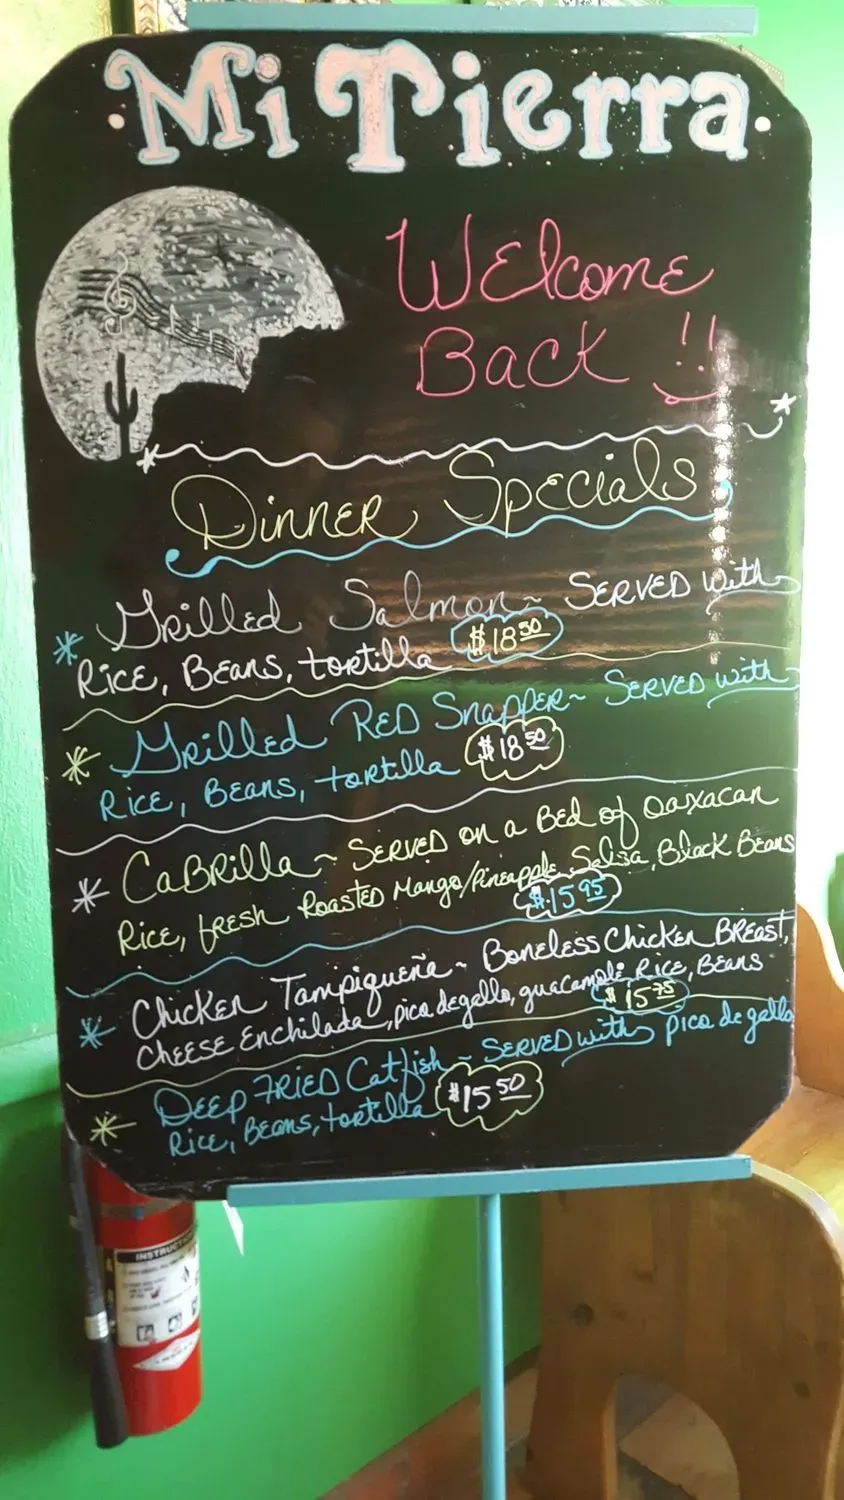 Mi Tierra
Welcome
Back !!
Dinner Specials
Grilled Salmon ~ Served with
Rice, Beans, tortilla $18.50
Grilled Red Snapper ~ Served with
Rice, Beans, tortilla $18.50
Cabrilla ~ Served on a Bed of Oaxacan
Rice, fresh Roasted Mango/Pineapple Salsa, Black Beans
$15.95
Chicken Tampiqueña ~ Boneless Chicken Breast,
Cheese Enchilada, pico de gallo, guacamole, Rice, Beans
$15.75
Deep Fried Catfish ~ Served with pico de gallo
Rice, Beans, tortilla $15.50
INSTRUCTIONS